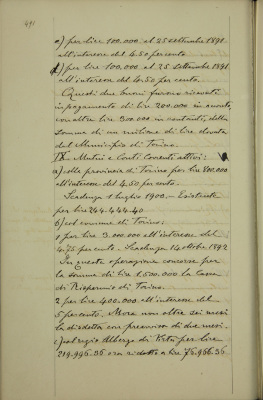 a) per lire 100.000 al 25 settembre 1891
all'interesse del 4.50 per cento
b) per lire 100.000 al 25 settembre 1891
all'interesse del 4.50 per cento.
Questi due buoni furono ricevuti
in pagamento di lire 200.000 in
con altre lire 300.000 in contanti, della
somma di un milione di lire dovuta
dal Municipio di Torino.
IX. Mutui e Conti Correnti attivi:
a) colla provincia di Torino per lire 800.000
all'interesse del 4.50 per cento.
Scadenza 1 luglio 1900 - Esistente
per lire 244.444.40
b) col comune di Torino:
1 per lire 3.000.000 all'interesse del
4.75 per cento. Scadenza 14 ottobre 1892
In questa operazione concorse per
la somma di lire 1.500.000 la Cassa
di Risparmio di Torino.
2 per lire 400.000 all'interesse del
5 per cento. Mora non oltre sei mesi
la disdetta con preavviso di due mesi.
c) col regio Albergo di Virtù per lire
219.996.36 ora ridotto a lire 75.966.36